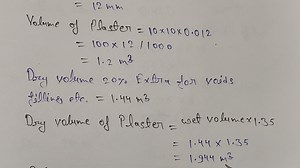 = 12 mm
Volume of Plaster = 10x10x0.012
= 100x12/1000
= 1.2 m³
Dry volume 20% Extra for voids
fillines etc. = 1.44 m³
Dry volume of Plaster = wet volume x 1.35
= 1.44 x 1.35
= 1.944 m³